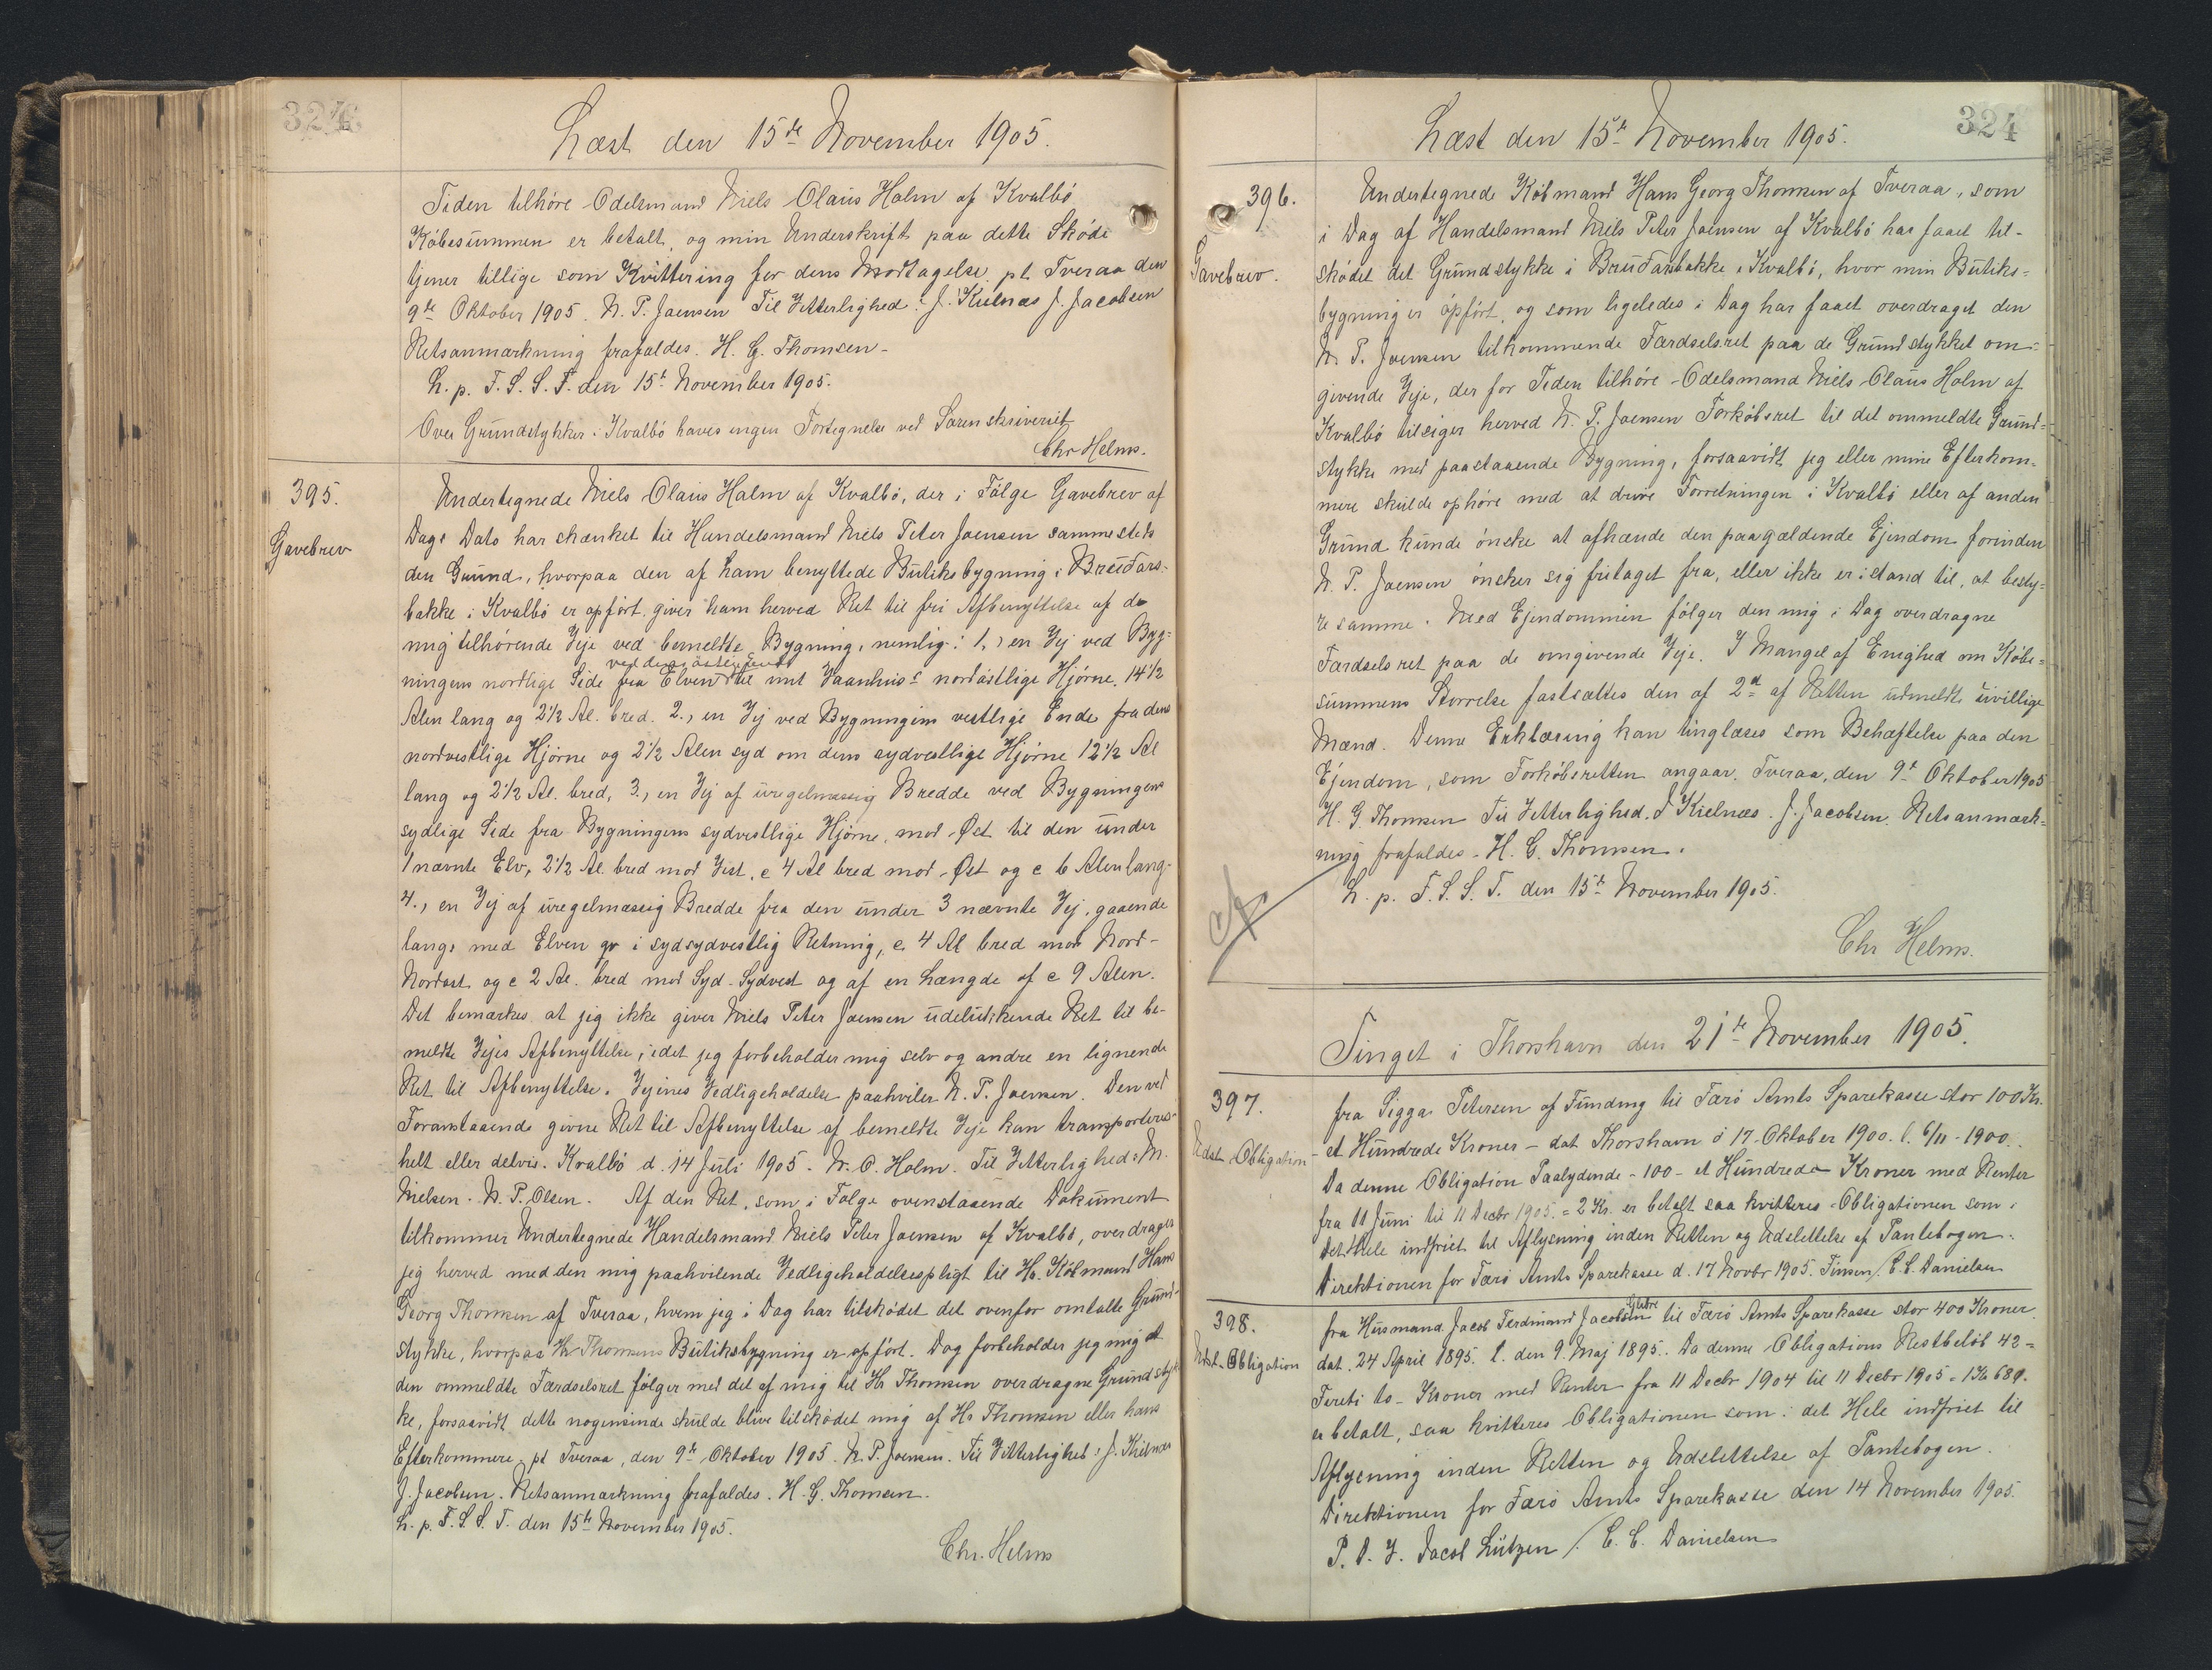 Læst den 15de November 1905.
Tiden tilhöre Odelsmand Niels Olaus Holm af Kvalbö
Köbesummen er betalt, og min Underskrift paa dette Sköde
tjener tillige som Kvittering for dens Modtagelse. pt. Tveraa den
9de Oktober 1905. N. P. Joensen Til Vitterlighed: J. Kielnæs J. Jacobsen
Retsanmærkning frafaldes. H. G. Thomsen-
L. p. F. S. S. T. den 15de November 1905.
Over Grundstykker i Kvalbö haves ingen Fortegnelse ved Sorenskriveriet
Chr Helms.
395.
Gavebrev
Undertegnede Niels Olaus Holm af Kvalbö, der i Fölge Gavebrev af
Dags Dato har skænket til Handelsmand Niels Peter Joensen sammesteds
den Grund, hvorpaa den af ham benyttede Butiksbygning i Bruðars-
bakke i Kvalbö er opfört, giver ham herved Ret til fri Afbenyttelse af de
mig tilhörende Veje ved bemeldte Bygning, nemlig: 1, en Vej ved Byg-
ved dens östre Ende
ningens nordlige Side fra Elven til mit Vaanhus's nordöstlige Hjörne, 14½
Alen lang og 2½ Al. bred. 2., en Vej ved Bygningens vestlige Ende fra dens
nordvestlige Hjörne og 2½ Alen syd om dens sydvestlige Hjörne 12½ Al
lang og 2½ Al. bred, 3., en Vej af uregelmæssig Bredde ved Bygningens
sydlige Side fra Bygningens sydvestlige Hjörne, mod Øst til den under
1 nævnte Elv, 2½ Al. bred mod Vest, c 4 Al bred mod Øst og c 6 Alen lang-
4., en Vej af uregelmæssig Bredde fra den under 3 nævnte Vej, gaaende
langs med Elven i sydsydvestlig Retning, c. 4 Al bred mod Nord-
Nordost og c 2 Al. bred mod Syd-Sydvest og af en Længde af c 9 Alen.
Det bemærkes at jeg ikke giver Niels Peter Joensen udelukkende Ret til be-
meldte Vejes Afbenyttelse, idet jeg forbeholder mig selv og andre en lignende
Ret til Afbenyttelse. Vejenes Vedligeholdelse paahviler N. P. Joensen. Den ved
Foranstaaende givne Ret til Afbenyttelse af bemeldte Veje kan transporteres
helt eller delvis. Kvalbö d. 14 Juli 1905. N. O. Holm. Til Vitterlighed: M.
Nielsen. N. P. Olsen. Af den Ret, som i Fölge ovenstaaende Dokument
tilkommer Undertegnede Handelsmand Niels Peter Joensen af Kvalbö, overdrager
jeg herved med den mig paahvilende Vedligeholdelsespligt til Hr. Köbmand Hans
Georg Thomsen af Tveraa, hvem jeg i Dag har tilsködet det ovenfor omtalte Grund-
stykke, hvorpaa Hr Thomsens Butiksbygning er opfört. Dog forbeholder jeg mig at
den ommeldte Færdselsret fölger med det af mig til Hr Thomsen overdragne Grundstyk-
ke, forsaavidt dette nogensinde skulde blive tilsködet mig af Hr Thomsen eller hans
Efterkommere, pt Tveraa, den 9de Oktober 1905. N. P. Joensen. Til Vitterlighed: J. Kielnæs
J. Jacobsen. Retsanmærkning frafaldes. H. G. Thomsen.
L. p. F. S. S. T. den 15de November 1905.
Chr. Helms
324
Læst den 15de November 1905.
396.
Gavebrev.
Undertegnede Köbmand Hans Georg Thomsen af Tveraa, som
i Dag af Handelsmand Niels Peter Joensen af Kvalbö har faaet til-
sködet det Grundstykke i Bruðarsbakke i Kvalbö, hvor min Butiks-
bygning er opfört, og som ligeledes i Dag har faaet overdraget den
N. P. Joensen tilkommende Færdselsret paa de Grundstykket om-
givende Veje, der for Tiden tilhöre Odelsmand Niels Olaus Holm af
Kvalbö tilsiger herved N. P. Joensen Forköbsret til det ommeldte Grund-
stykke med paastaaende Bygning, forsaavidt jeg eller mine Efterkom-
mere skulde ophöre med at drive Forretningen i Kvalbö eller af anden
Grund kunde önske at afhænde den paagældende Ejendom forinden
N. P. Joensen önsker sig fritaget fra, eller ikke er istand til, at besty-
re samme. Med Ejendommen fölger den mig i Dag overdragne
Færdselsret paa de omgivende Veje. I Mangel af Enighed om Köbe-
summens Störrelse fastsættes den af 2de af Retten udmeldte uvillige
Mænd. Denne Erklæring kan tinglæses som Behæftelse paa den
Ejendom, som Forköbsretten angaar. Tveraa, den 9de Oktober 1905
H. G. Thomsen Til Vitterlighed. J Kielnæs. J. Jacobsen. Retsanmærk-
ning frafaldes. H. G. Thomsen.
L. p. F. S. S. T. den 15de November 1905.
Chr Helms.
Tinget i Thorshavn den 21de November 1905.
397.
Udsl. Obligation
fra Sigga Petersen af Funding til Færö Amts Sparekasse stor 100 Kr.
- et Hundrede Kroner - dat Thorshavn d 17 Oktober 1900. l. 6/11-1900.
Da denne Obligation Paalydende - 100 - et Hundrede Kroner med Renter
fra 11 Juni til 11 Decbr 1905. = 2 Kr. er betalt saa kvitteres Obligationen som i
det Hele indfriet til Aflysning inden Retten og Udslettelse af Pantebogen.
Direktionen for Færö Amts Sparekasse d. 17 Novbr 1905. Finsen/ C. C. Danielsen
398.
Udsl. Obligation
fra Husmand Jacob Ferdinand Jacobsen til Færö Amts Sparekasse stor 400 Kroner
dat. 24 April 1895. l. den 9. Maj 1895. Da denne Obligations Restbelöb 42 =
Fireti to - Kroner med Renter fra 11 Decbr 1904 til 11 Decbr 1905 = 1 Kr 68 Ø.
er betalt, saa kvitteres Obligationen som i det Hele indfriet til
Aflysning inden Retten og Udslettelse af Pantebogen.
Direktionen for Færö Amts Sparekasse den 14 November 1905.
P. D. V. Jacob Lützen /. C. C. Danielsen